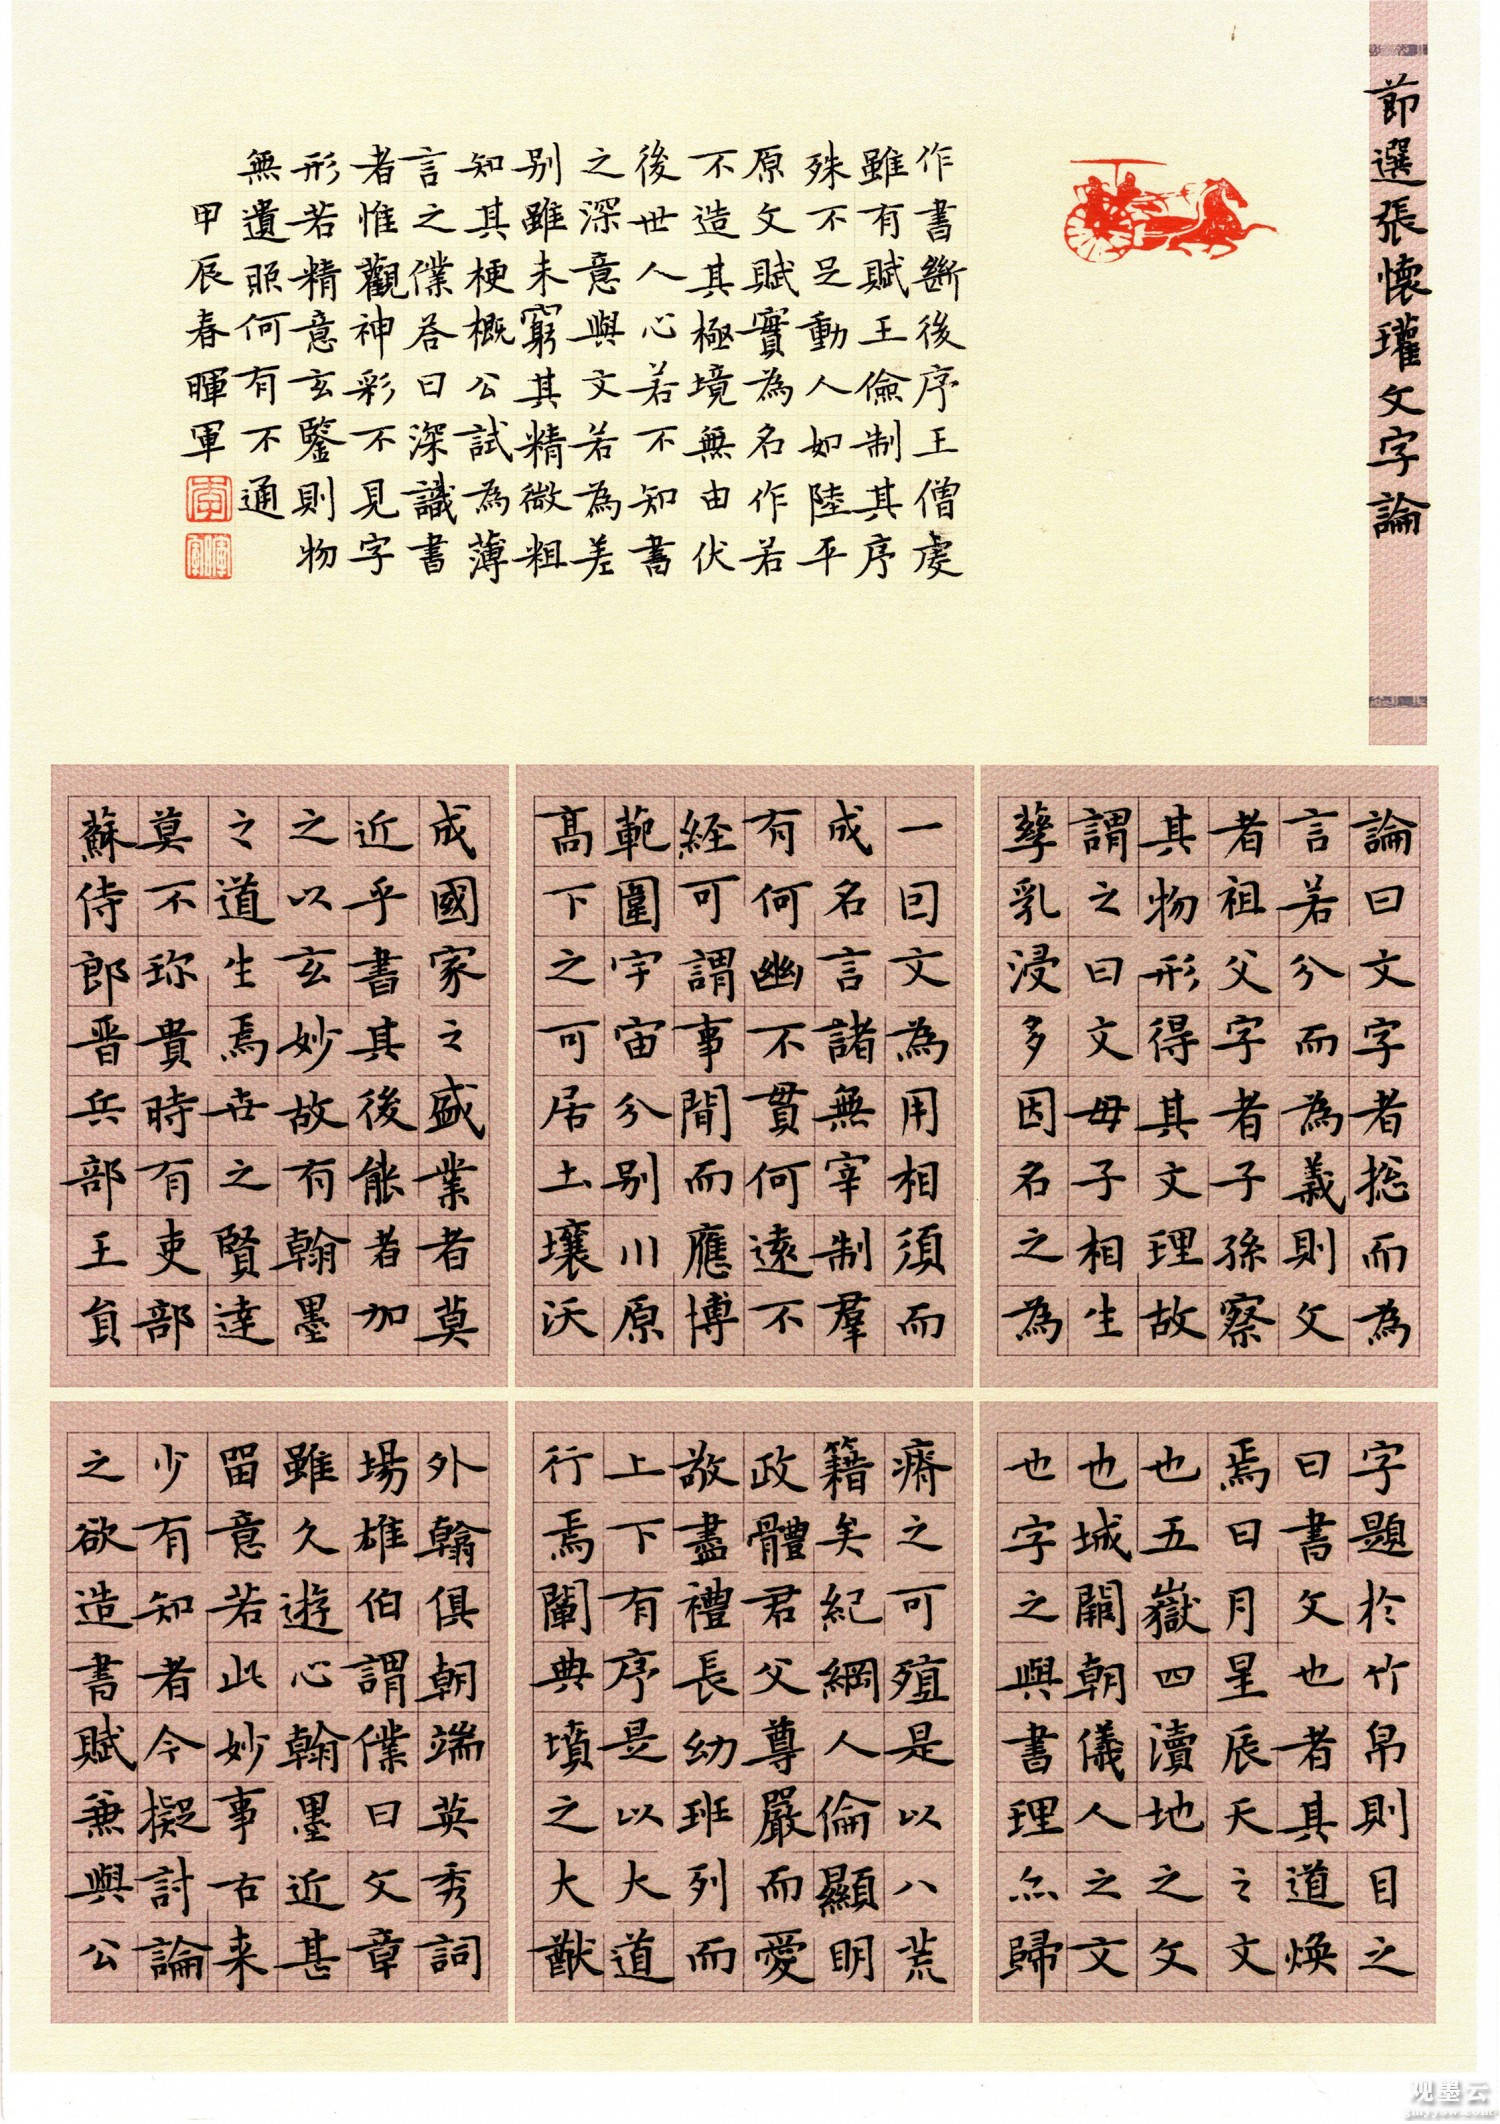 節選張懷瓘文字論
論曰文字者捴而為
言若分而為義則文
者祖父字者子孫察
其物形得其文理故
謂之曰文母子相生
孳乳浸多因名之為
字題於竹帛則目之
曰書文也者其道煥
焉日月星辰天之文
也五嶽四瀆地之文
也城闕朝儀人之文
也字之與書理亦歸
一囙文為用相須而
成名言諸無宰制羣
有何幽不貫何遠不
經可謂事簡而應博
範圍宇宙分別川原
高下之可居土壤沃
瘠之可殖是以八荒
籍矣紀綱人倫顯明
政體君父尊嚴而愛
敬盡禮長幼班列而
上下有序是以大道
行焉闡典墳之大猷
成國家之盛業者莫
近乎書其後能者加
之以玄妙故有翰墨
之道生焉世之賢達
莫不珍貴時有吏部
蘇侍郎晉兵部王員
外翰俱朝端英秀詞
場雄伯謂僕曰文章
雖久遊心翰墨近甚
留意若此妙事古来
少有知者今擬討論
之欲造書賦兼與公
作書斷後序王僧虔
雖有賦王儉制其序
殊不足動人如陸平
原文賦實為名作若
不造其極境無由伏
後世人心若不知書
之深意與文若為差
別雖未窮其精微粗
知其梗概公試為薄
言之僕答曰深識書
者惟觀神彩不見字
形若精意玄鑒則物
無遺照何有不通
甲辰春暉軍
观墨云